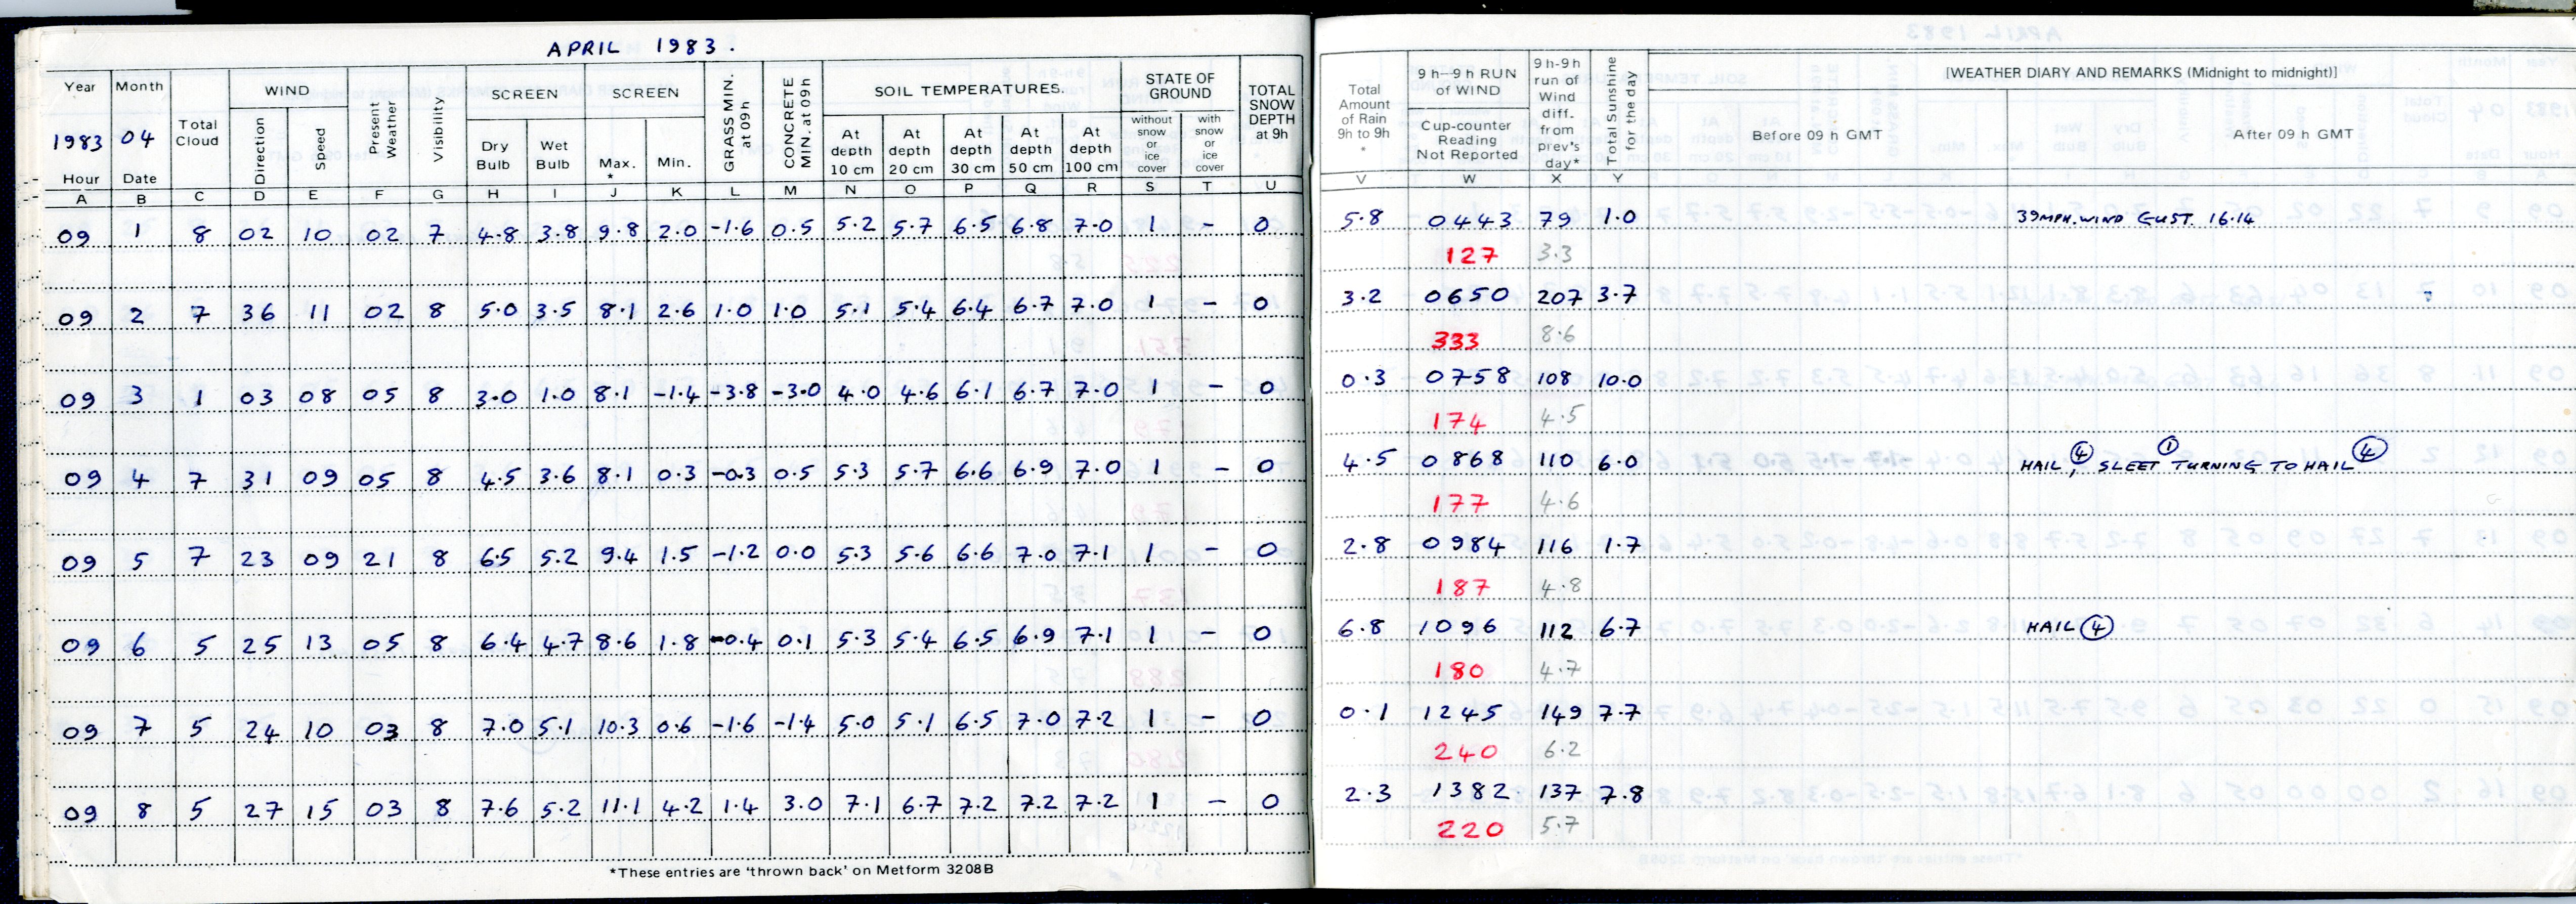 APRIL 1983.
Year Month Total Cloud WIND Present Weather Visibility SCREEN SCREEN GRASS MIN. at 09h CONCRETE MIN. at 09h SOIL TEMPERATURES. STATE OF GROUND TOTAL SNOW DEPTH at 9h
1983 04 Direction Speed Dry Bulb Wet Bulb Max. * Min. At depth 10 cm At depth 20 cm At depth 30 cm At depth 50 cm At depth 100 cm without snow or ice cover with snow or ice cover
Hour Date
A B C D E F G H I J K L M N O P Q R S T U
09 1 8 02 10 02 7 4.8 3.8 9.8 2.0 -1.6 0.5 5.2 5.7 6.5 6.8 7.0 1 - 0
09 2 7 36 11 02 8 5.0 3.5 8.1 2.6 1.0 1.0 5.1 5.4 6.4 6.7 7.0 1 - 0
09 3 1 03 08 05 8 3.0 1.0 8.1 -1.4 -3.8 -3.0 4.0 4.6 6.1 6.7 7.0 1 - 0
09 4 7 31 09 05 8 4.5 3.6 8.1 0.3 -0.3 0.5 5.3 5.7 6.6 6.9 7.0 1 - 0
09 5 7 23 09 21 8 6.5 5.2 9.4 1.5 -1.2 0.0 5.3 5.6 6.6 7.0 7.1 1 - 0
09 6 5 25 13 05 8 6.4 4.7 8.6 1.8 -0.4 0.1 5.3 5.4 6.5 6.9 7.1 1 - 0
09 7 5 24 10 03 8 7.0 5.1 10.3 0.6 -1.6 -1.4 5.0 5.1 6.5 7.0 7.2 1 - 0
09 8 5 27 15 03 8 7.6 5.2 11.1 4.2 1.4 3.0 7.1 6.7 7.2 7.2 7.2 1 - 0
*These entries are 'thrown back' on Metform 3208B
Total Amount of Rain 9h to 9h * 9 h–9 h RUN of WIND Cup-counter Reading Not Reported 9 h-9 h run of Wind diff. from prev's day* Total Sunshine for the day [WEATHER DIARY AND REMARKS (Midnight to midnight)]
Before 09 h GMT After 09 h GMT
V W X Y
5.8 0443 79 1.0 39MPH. WIND GUST. 16.14
127 3.3
3.2 0650 207 3.7
333 8.6
0.3 0758 108 10.0
174 4.5
4.5 0868 110 6.0 HAIL ④, SLEET ① TURNING TO HAIL ④
177 4.6
2.8 0984 116 1.7
187 4.8
6.8 1096 112 6.7 HAIL ④
180 4.7
0.1 1245 149 7.7
240 6.2
2.3 1382 137 7.8
220 5.7